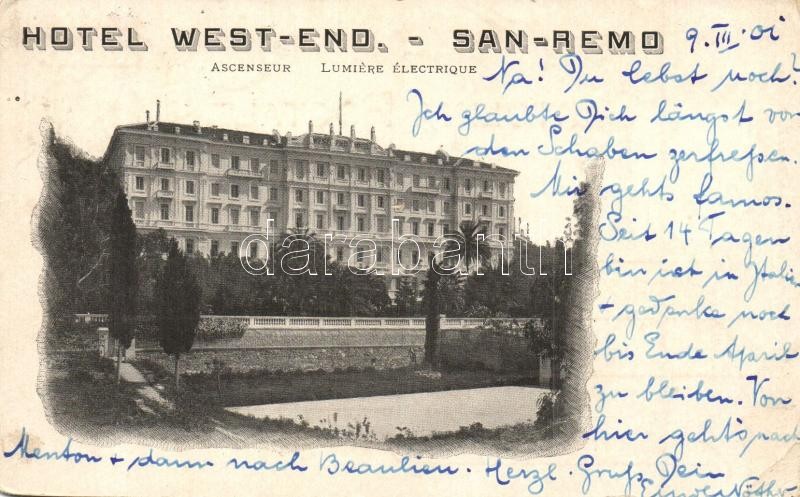 HOTEL WEST-END. - SAN-REMO
ASCENSEUR LUMIÈRE ÉLECTRIQUE
9.III.01
Na! Du lebst noch?
Ich glaubte Dich längst von
den Schaben zerfreßen.
Mir gehts famos.
Seit 14 Tagen
bin ich in Italien
+ gedenke noch
bis Ende April
zu bleiben. Von
hier geht's nach
Menton + dann nach Beaulieu. Herzl. Gruß Dein
WEST END HOTEL
darabanth